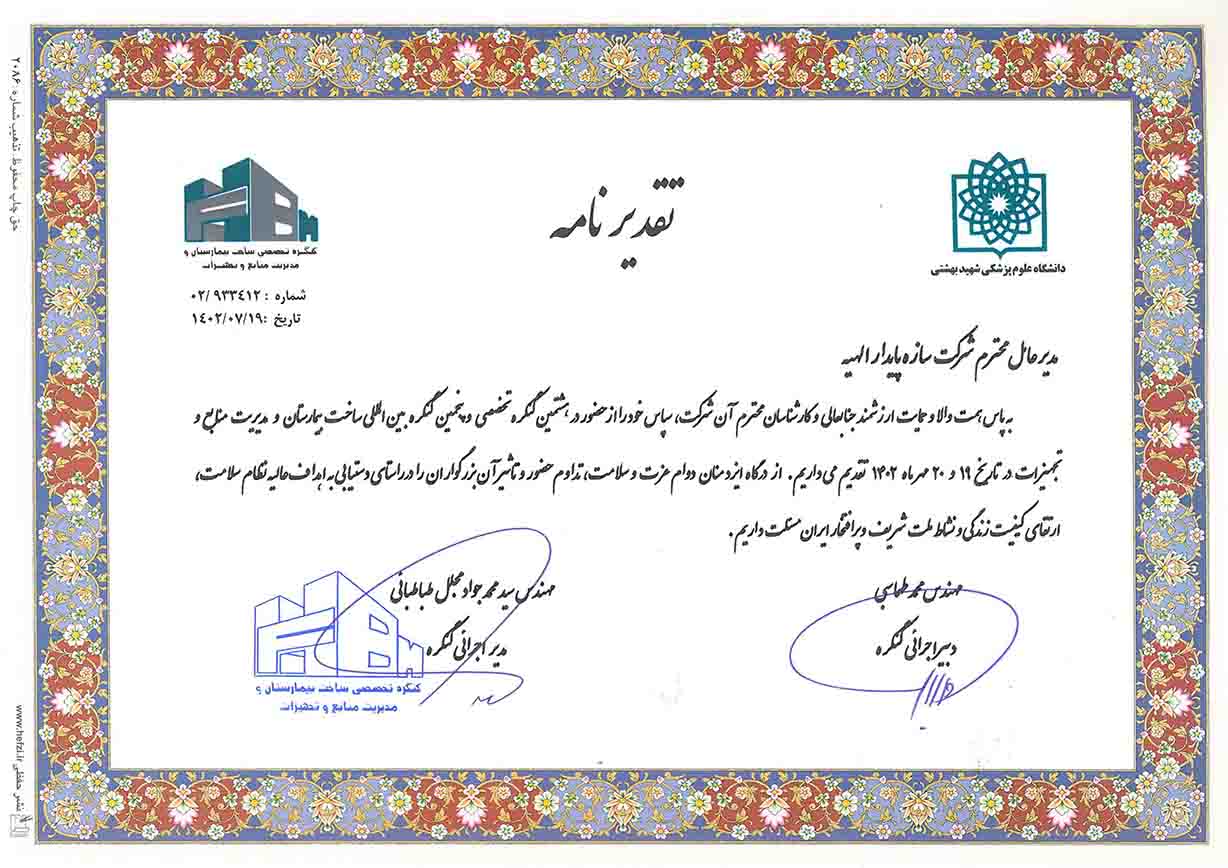 تقدیر نامه
دانشگاه علوم پزشکی شهید بهشتی
کنگره تخصصی ساخت بیمارستان و
مدیریت منابع و تجهیزات
شماره : ۰۲/۹۳۳٤۱۲
تاریخ :۱٤۰۲/۰۷/۱۹
مدیر عامل محترم شرکت سازه پایدار الهیه
به پاس همت والا و حمایت ارزشمند جنابعالی و کارشناسان محترم آن شرکت، سپاس خود را از حضور در هشتمین کنگره تخصصی و پنجمین کنگره بین المللی ساخت بیمارستان و مدیریت منابع و
تجهیزات در تاریخ ۱۹ و ۲۰ مهر ماه ۱۴۰۲ تقدیم می داریم. از درگاه ایزد منان دوام عزت و سلامت، تداوم حضور و تاثیر آن بزرگواران را در راستای دستیابی به اهداف عالیه نظام سلامت،
ارتقای کیفیت زندگی و نشاط ملت شریف و پرافتخار ایران مسئلت داریم.
مهندس محمد طهماسبی
دبیر اجرائی کنگره
مهندس سید محمد جواد مجلل طباطبائی
مدیر اجرائی کنگره
کنگره تخصصی ساخت بیمارستان و
مدیریت منابع و تجهیزات
حق چاپ محفوظ. تذهیب شماره: ۲۰۸۶
www.hefzi.ir نشر حفظی